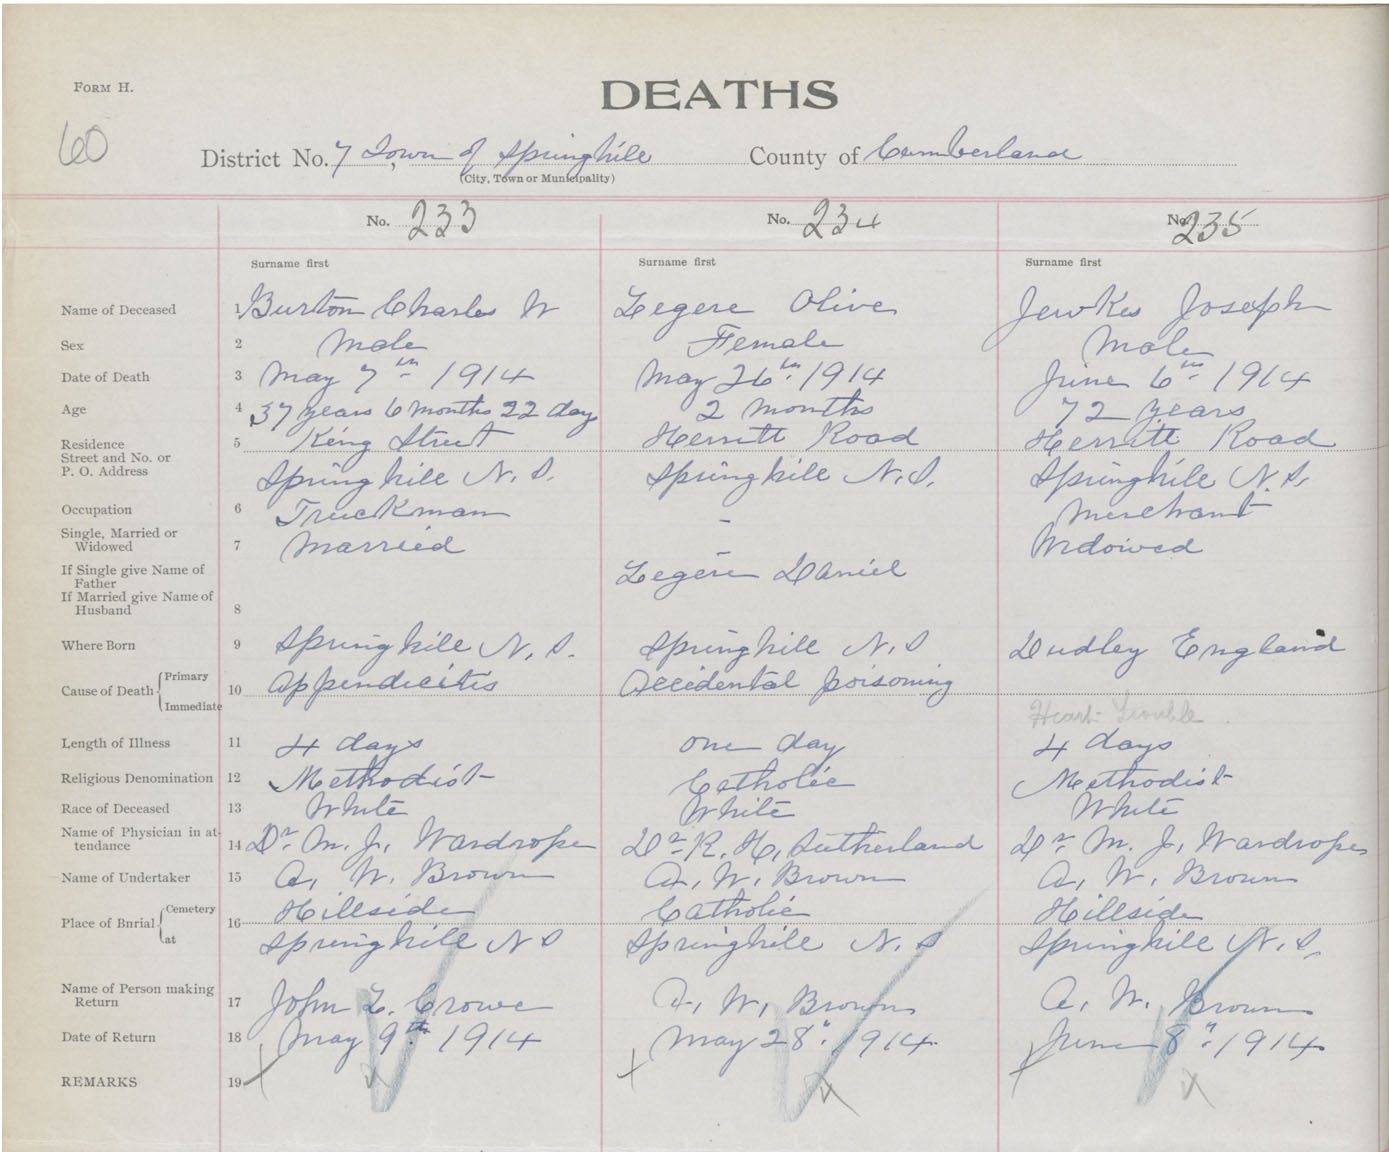 FORM H.
DEATHS
60
District No. 7 Town of Springhill County of Cumberland
(City, Town or Municipality)
No. 233 No. 234 No. 235
Surname first Surname first Surname first
Name of Deceased 1 Burton Charles W Legere Olive Jewkes Joseph
Sex 2 Male Female Male
Date of Death 3 May 7th 1914 May 26th 1914 June 6th 1914
Age 4 37 years 6 months 22 days 2 months 72 years
Residence 5 King Street Herritt Road Herritt Road
Street and No. or
P. O. Address Springhill N. S. Springhill N. S. Springhill N. S.
Occupation 6 Truckman - Merchant
Single, Married or
Widowed 7 Married - Widowed
If Single give Name of Legere Daniel
Father
If Married give Name of
Husband 8
Where Born 9 Springhill N. S. Springhill N. S Dudley England
Cause of Death Primary 10 Appendicitis Accidental poisoning
Immediate Heart Trouble
Length of Illness 11 4 days one day 4 days
Religious Denomination 12 Methodist Catholic Methodist
Race of Deceased 13 White White White
Name of Physician in at-
tendance 14 Dr. M. J. Wardrope Dr. R. H. Sutherland Dr. M. J. Wardrope
Name of Undertaker 15 A. W. Brown A. W. Brown A. W. Brown
Place of Bnrial Cemetery 16 Hillside Catholic Hillside
at Springhill N S Springhill N. S Springhill N. S.
Name of Person making
Return 17 John L. Crowe A. W. Brown A. W. Brown
Date of Return 18 May 9th 1914 May 28" 1914 June 8" 1914
REMARKS 19 x x x x x